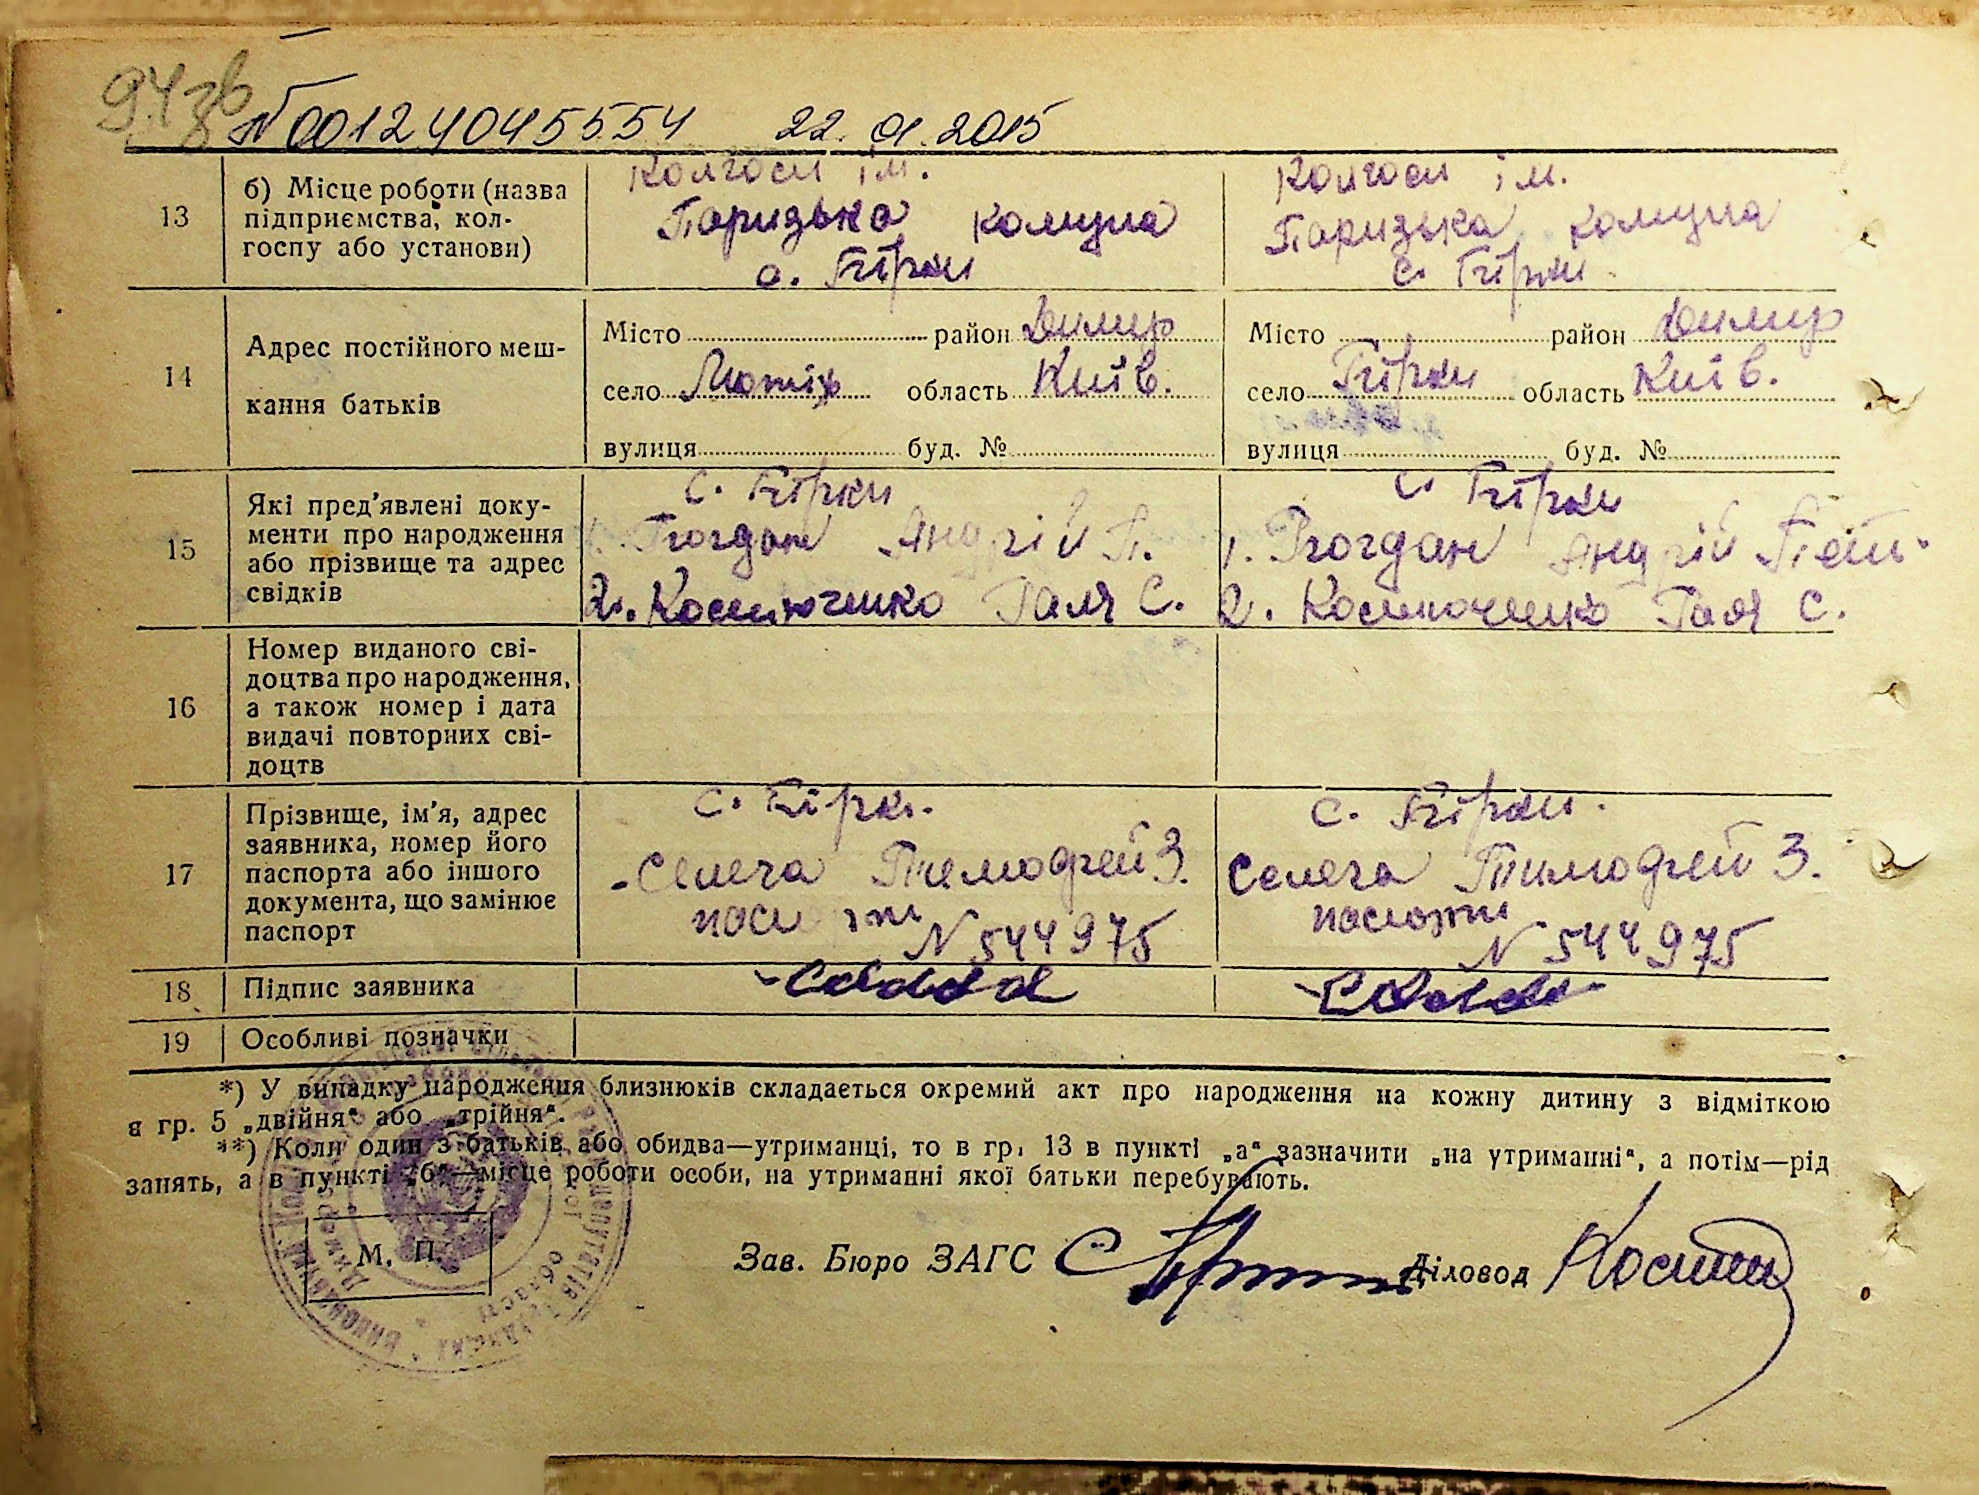 94зв
N 00124045554 22.01.2015
13 б) Місце роботи (назва підприємства, колгоспу або установи)
Колгосп ім.
Паризька комуна
с. Гірки
Колгосп ім.
Паризька комуна
с. Гірки
14 Адрес постійного мешкання батьків
Місто район Димир
село Лютіж область Київ.
вулиця буд. №
Місто район Димир
село Гірки область Київ.
вулиця буд. №
15 Які пред'явлені документи про народження або прізвище та адрес свідків
с. Гірки
1. Богдан Андрій П.
2. Костюченко Галя С.
с. Гірки
1. Богдан Андрій Пет.
2. Костюченко Галя С.
16 Номер виданого свідоцтва про народження, а також номер і дата видачі повторних свідоцтв
17 Прізвище, ім'я, адрес заявника, номер його паспорта або іншого документа, що замінює паспорт
с. Гірки.
Селега Тимофей З.
паспорт
N 544975
с. Гірки.
Селега Тимофей З.
паспорт
N 544975
18 Підпис заявника
19 Особливі позначки
*) У випадку народження близнюків складається окремий акт про народження на кожну дитину з відміткою
в гр. 5 „двійня“ або „трійня“.
**) Коли один з батьків або обидва—утриманці, то в гр. 13 в пункті „а“ зазначити „на утриманні“, а потім—рід
занять, а в пункті „б“—місце роботи особи, на утриманні якої батьки перебувають.
М. П.
Зав. Бюро ЗАГС Діловод